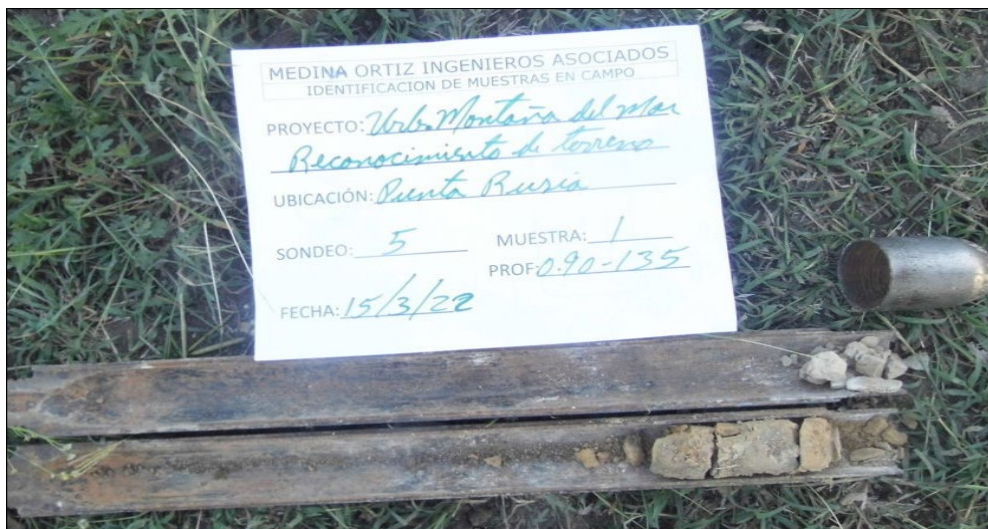 MEDINA ORTIZ INGENIEROS ASOCIADOS
IDENTIFICACION DE MUESTRAS EN CAMPO
PROYECTO: Urb. Montaña del Mar
Reconocimiento de terreno
UBICACIÓN: Punta Rusia
SONDEO: 5 MUESTRA: 1
PROF: 0.90-135
FECHA: 15/3/22